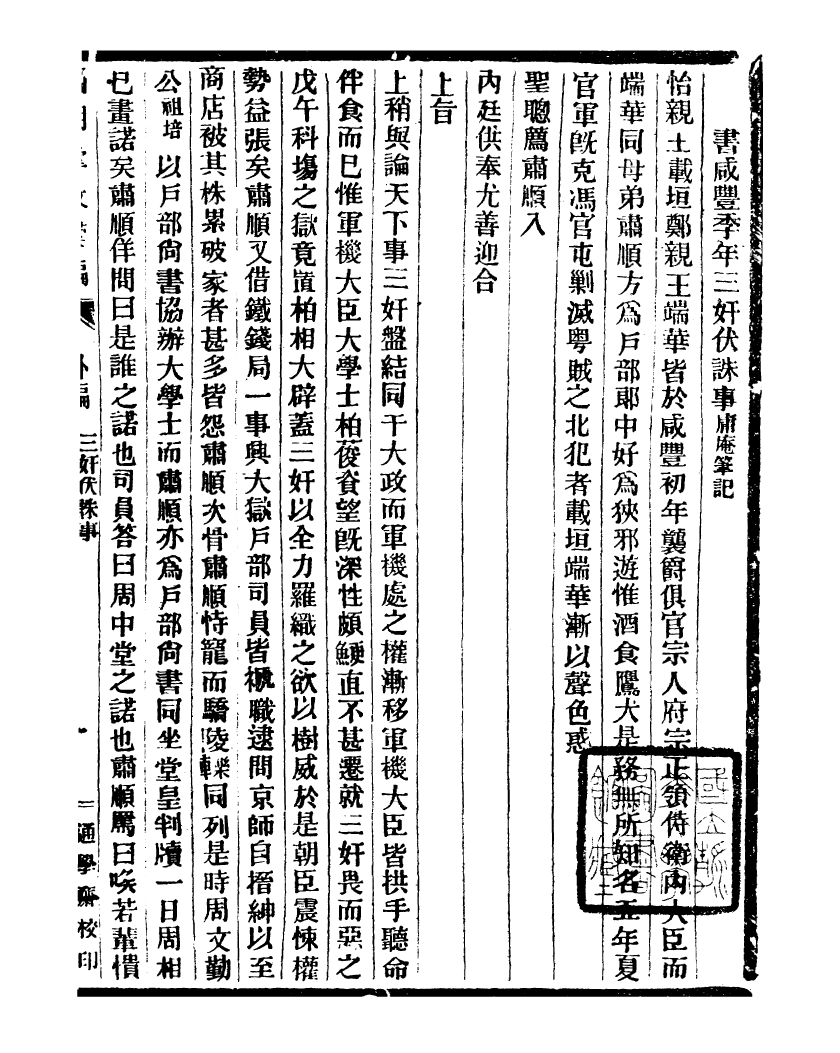 書咸豐季年三奸伏誅事庸庵筆記
怡親王載垣鄭親王端華皆於咸豐初年襲爵俱官宗人府宗正領侍衛內大臣而
端華同母弟肅順方爲戶部郎中好爲狹邪遊惟酒食鷹犬是務無所知名五年夏
官軍旣克馮官屯剿滅粵賊之北犯者載垣端華漸以聲色惑
聖聰薦肅順入
內廷供奉尤善迎合
上旨
上稍與論天下事三奸盤結同干大政而軍機處之權漸移軍機大臣皆拱手聽命
伴食而已惟軍機大臣大學士柏葰資望旣深性頗鯁直不甚遷就三奸畏而惡之
戊午科場之獄竟置柏相大辟蓋三奸以全力羅織之欲以樹威於是朝臣震悚權
勢益張矣肅順又借鐵錢局一事興大獄戶部司員皆褫職逮問京師自搢紳以至
商店被其株累破家者甚多皆怨肅順次骨肅順恃寵而驕陵轢同列是時周文勤
公祖培以戶部尙書協辦大學士而肅順亦爲戶部尙書同坐堂皇判牘一日周相
已畫諾矣肅順佯問曰是誰之諾也司員答曰周中堂之諾也肅順罵曰唉若輩憒
文 編 外編 三奸伏誅事 二 通學齋校印
國立